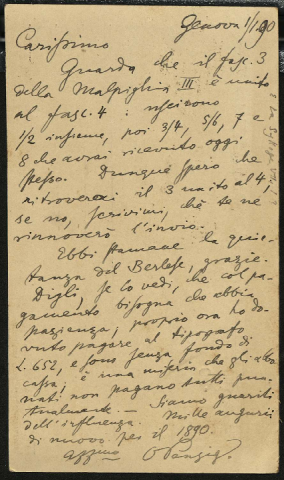 Genova 1/1 90
Carissimo
Guarda che il fasc. 3
della Malpighia III è unito
al fasc. 4: uscirono
1/2 insieme, poi 3/4, 5/6, 7 e
8 che avrai ricevuto oggi
stesso. Dunque spero che
ritroverai il 3 unito al 4,
se no, scrivimi, che te ne
rinnoverò l'invio.
Ebbi stamane la quie-
tanza del Berlese, grazie.
Digli, se lo vedi, che col pa-
gamento bisogna che abbia
pazienza; proprio ora ho do-
vuto pagare al tipografo
L. 652, e sono senza fondo di
cassa; è una miseria che gli abbo-
nati non pagano tutti pun-
tualmente. — Siamo guariti
dell'influenza. Mille augurii
di nuovo per il 1890.
affmo OPenzig